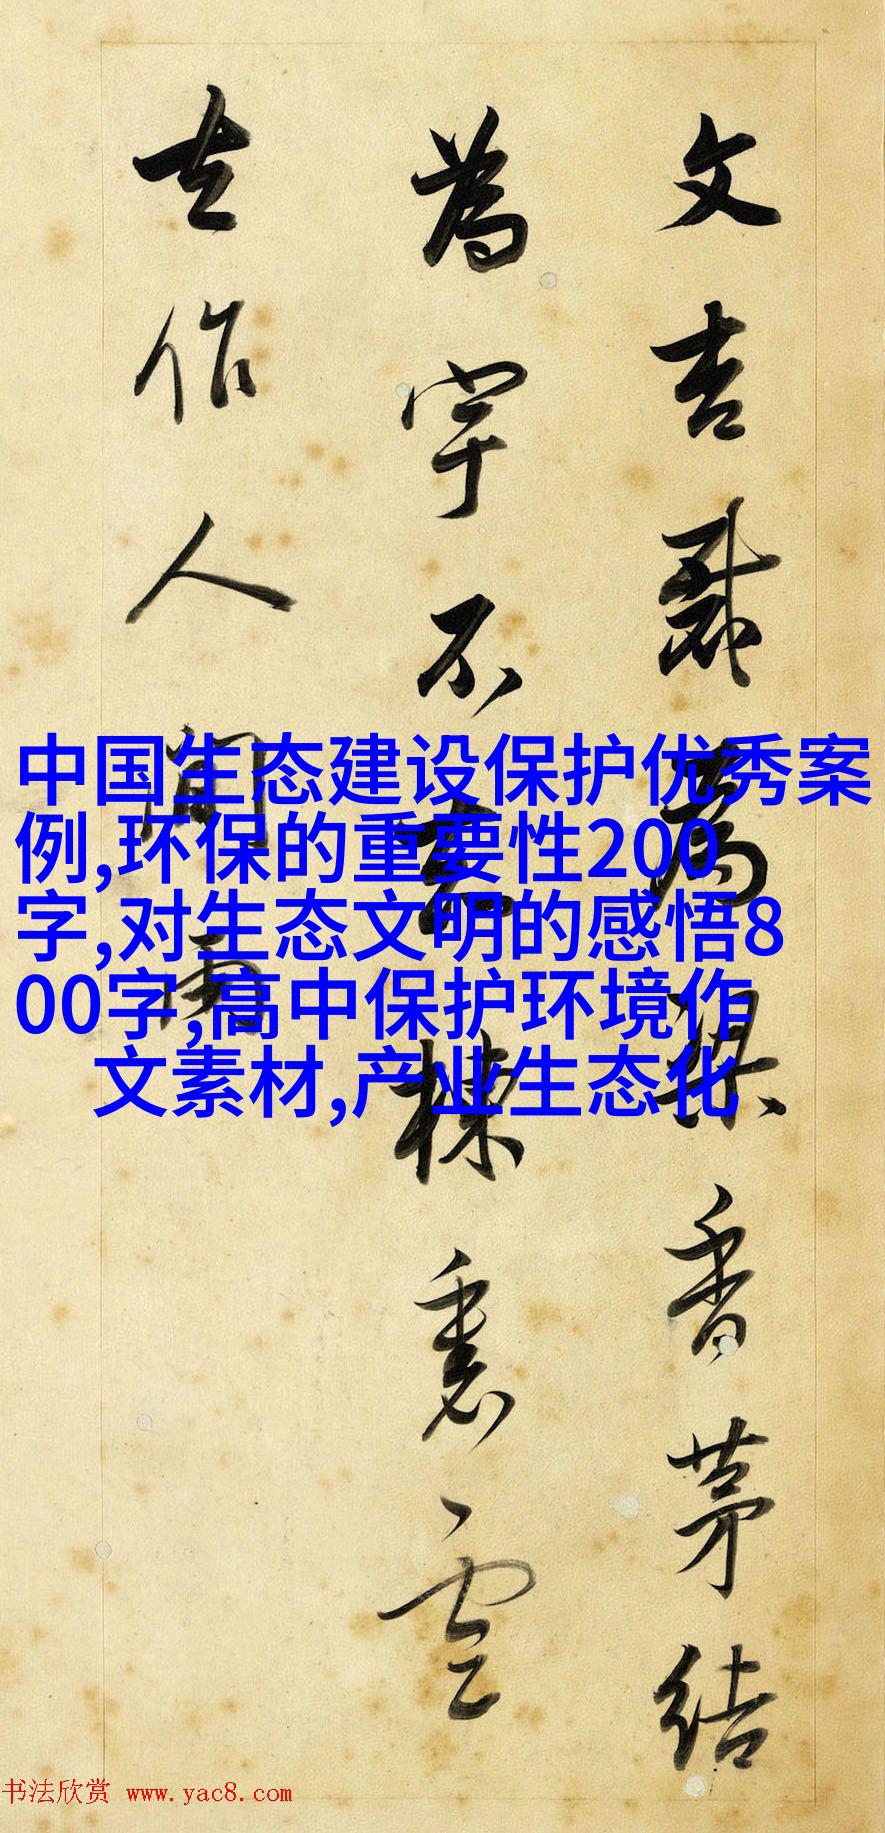 文杏裁為梁香茅結
為宇不知棟裏雲
去作人間雨
中国生态建设保护优秀案
例,环保的重要性200
字,对生态文明的感悟8
00字,高中保护环境作
文素材,产业生态化
书法欣赏 www.yac8.com